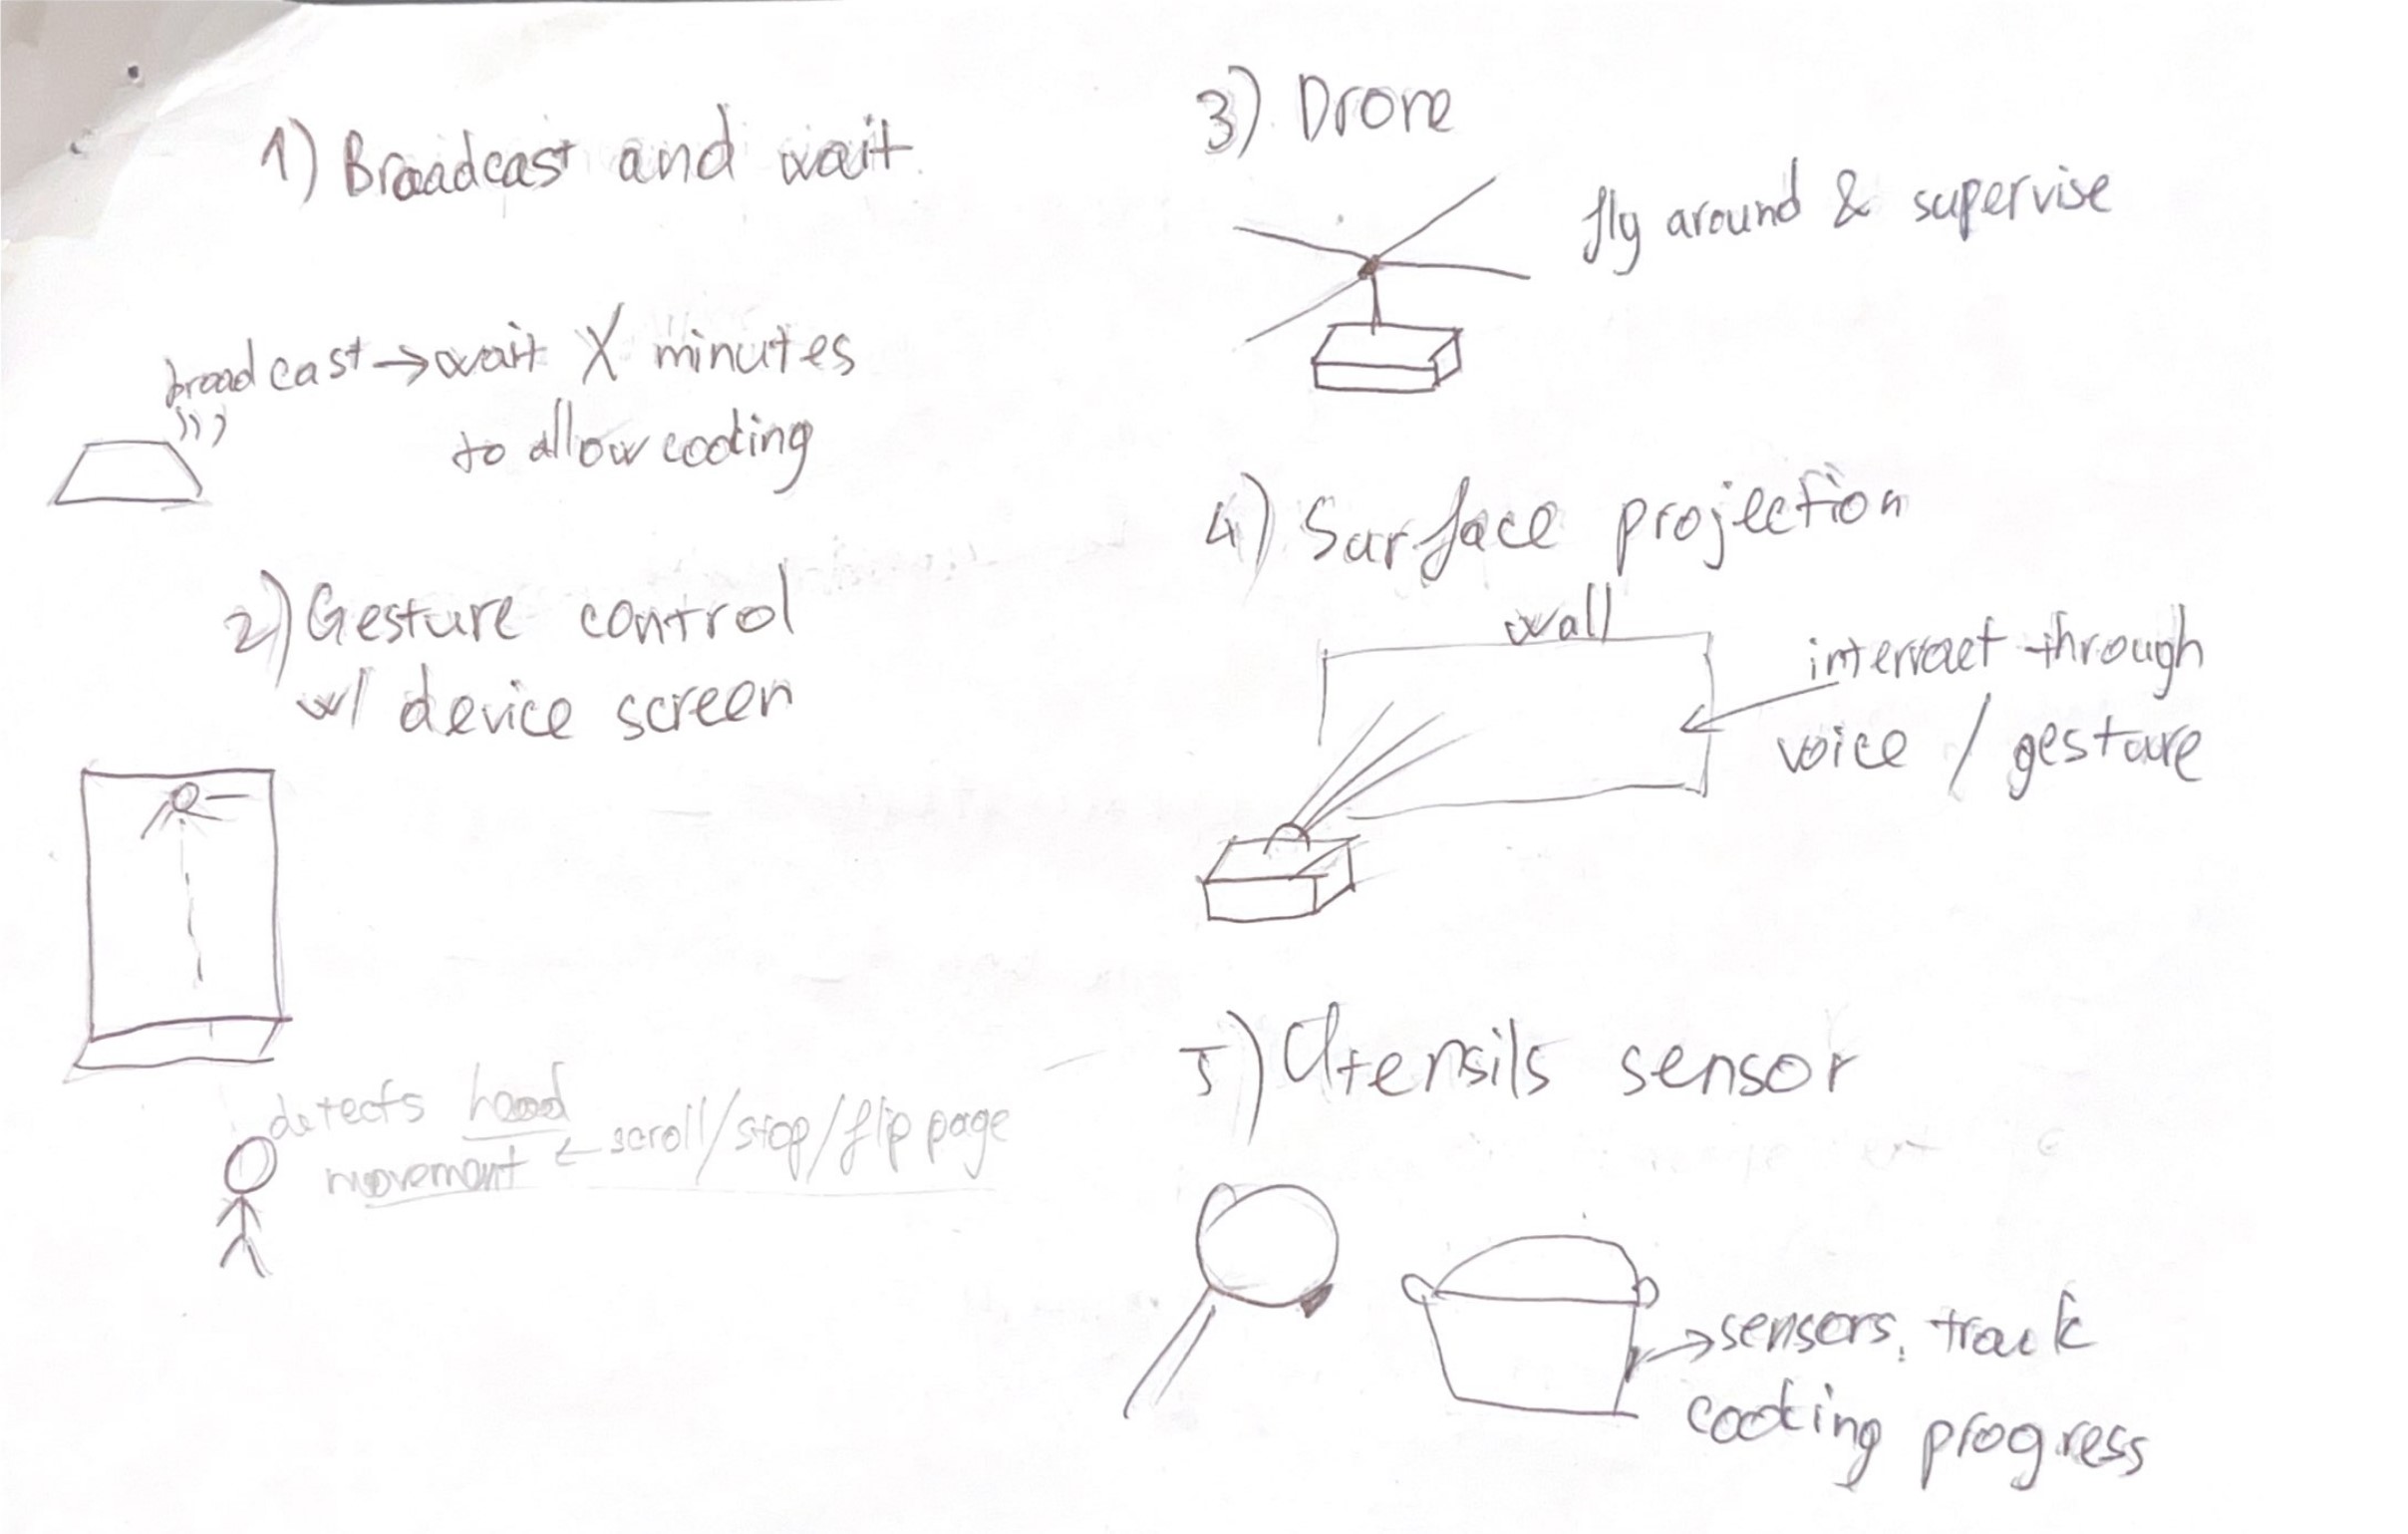 1) Broadcast and wait
broadcast → wait X minutes
to allow cooking
2) Gesture control
w/ device screen
detects hand
movement ← scroll/stop/flip page
3) Drone
fly around & supervise
4) Surface projection
wall
interract through
voice / gesture
5) Utensils sensor
→ sensors, track
cooking progress